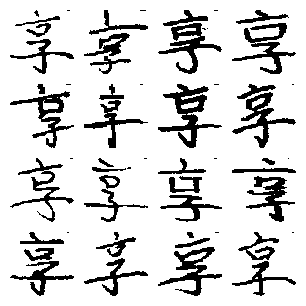 享享享享
享享享享
享享享享
享享享享